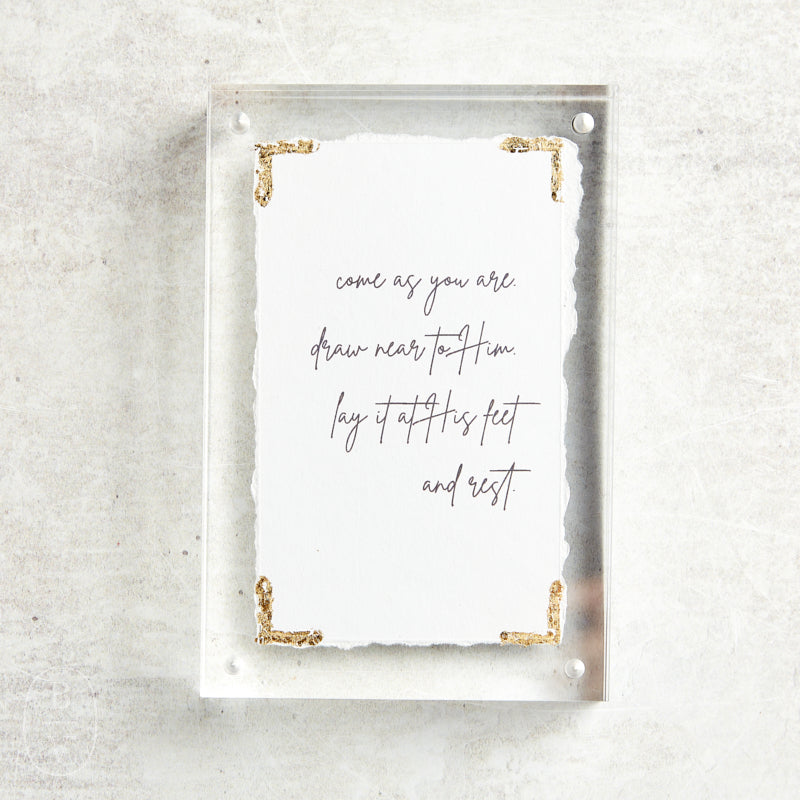 come as you are.
draw near to Him.
lay it at His feet
and rest.